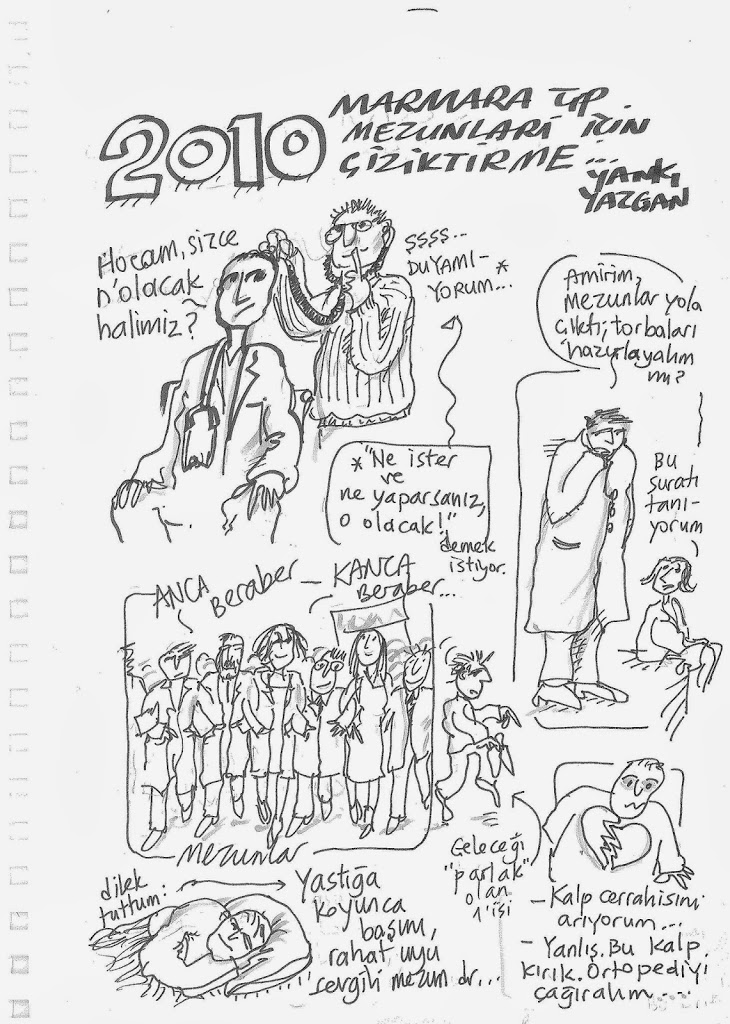 2010
MARMARA TIP
MEZUNLARI İÇİN
ÇİZİKTİRME...
YANKI
YAZGAN
Hocam, sizce
n'olacak
halimiz?
ŞŞŞŞ...
DUYAMI-
YORUM...*
*"Ne ister
ve
ne yaparsanız,
o olacak!"
demek
istiyor.
Amirim,
mezunlar yola
çıktı, torbaları
hazırlayalım
mı?
Bu
suratı
tanı-
yorum
ANCA
Beraber
— KANCA
Beraber...
Mezunlar
Geleceği
"parlak"
olan
1'isi
— Kalp cerrahisini
arıyorum...
— Yanlış. Bu kalp
kırık. Ortopediyi
çağıralım....
dilek
tuttum:
Yastığa
koyunca
başını,
rahat uyu
sevgili mezun dr...